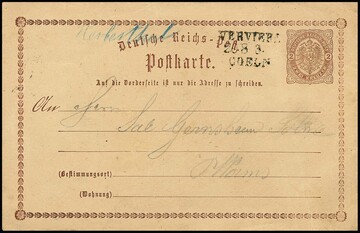 Herbesthal
Deutsche Reichs-Post.
VERVIERS
Postkarte.
COELN
Auf die Vorderseite ist nur die Adresse zu schreiben.
2
2
An Herrn
Sal. Gernsheim
(Bestimmungsort)
Worms
(Wohnung)